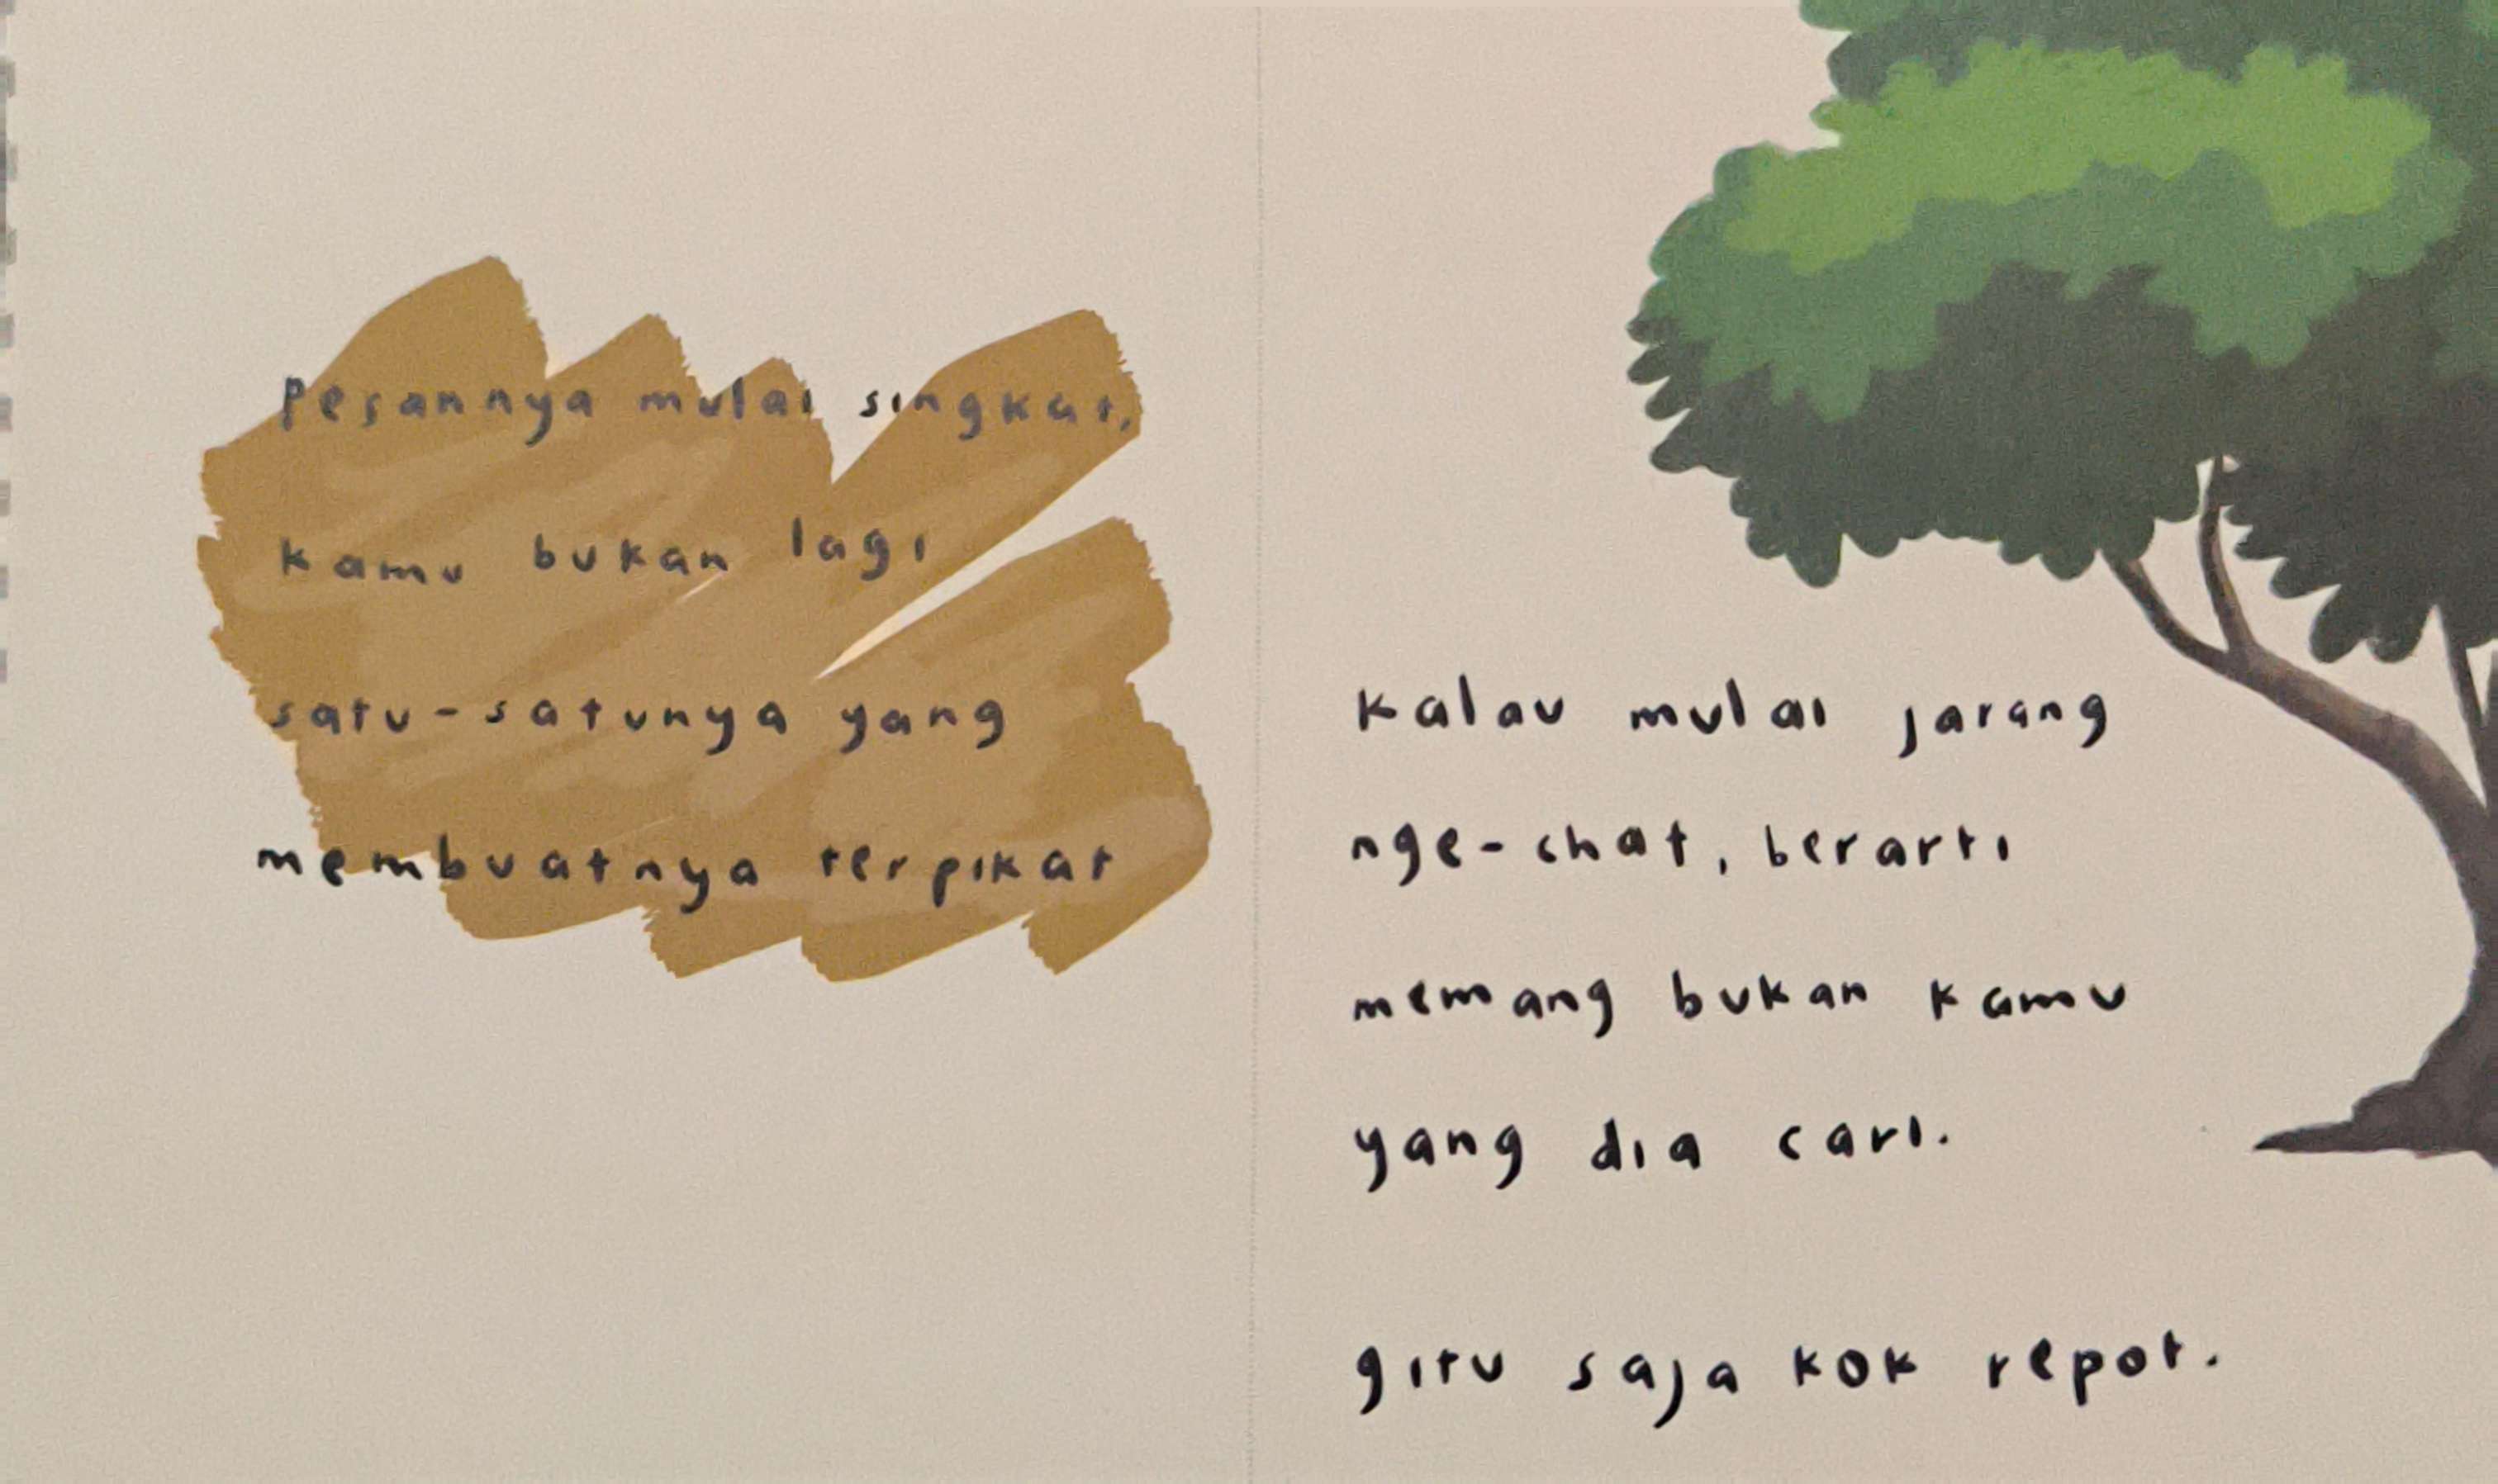 pesannya mulai singkat,
kamu bukan lagi
satu-satunya yang
membuatnya terpikat
kalau mulai jarang
nge-chat, berarti
memang bukan kamu
yang dia cari.
gitu saja kok repot.